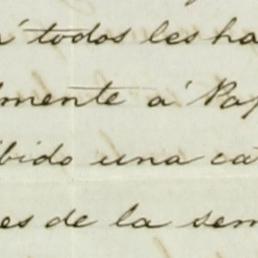 á todos les ha
lmente á Pap
ibido una ca
es de la sem